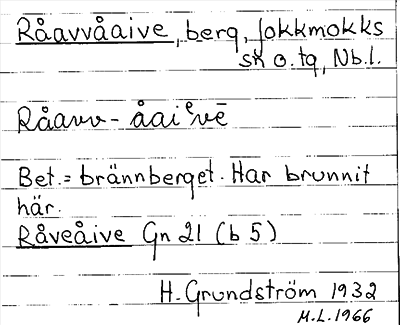 Råavvåaive, berg, Jokkmokks
sn o. tg, Nb.l.
Råavv-åaiᵉvē
Bet. = brännberget. Har brunnit
här.
Råveåive Gn 21 (b 5)
H. Grundström 1932
M.L. 1966